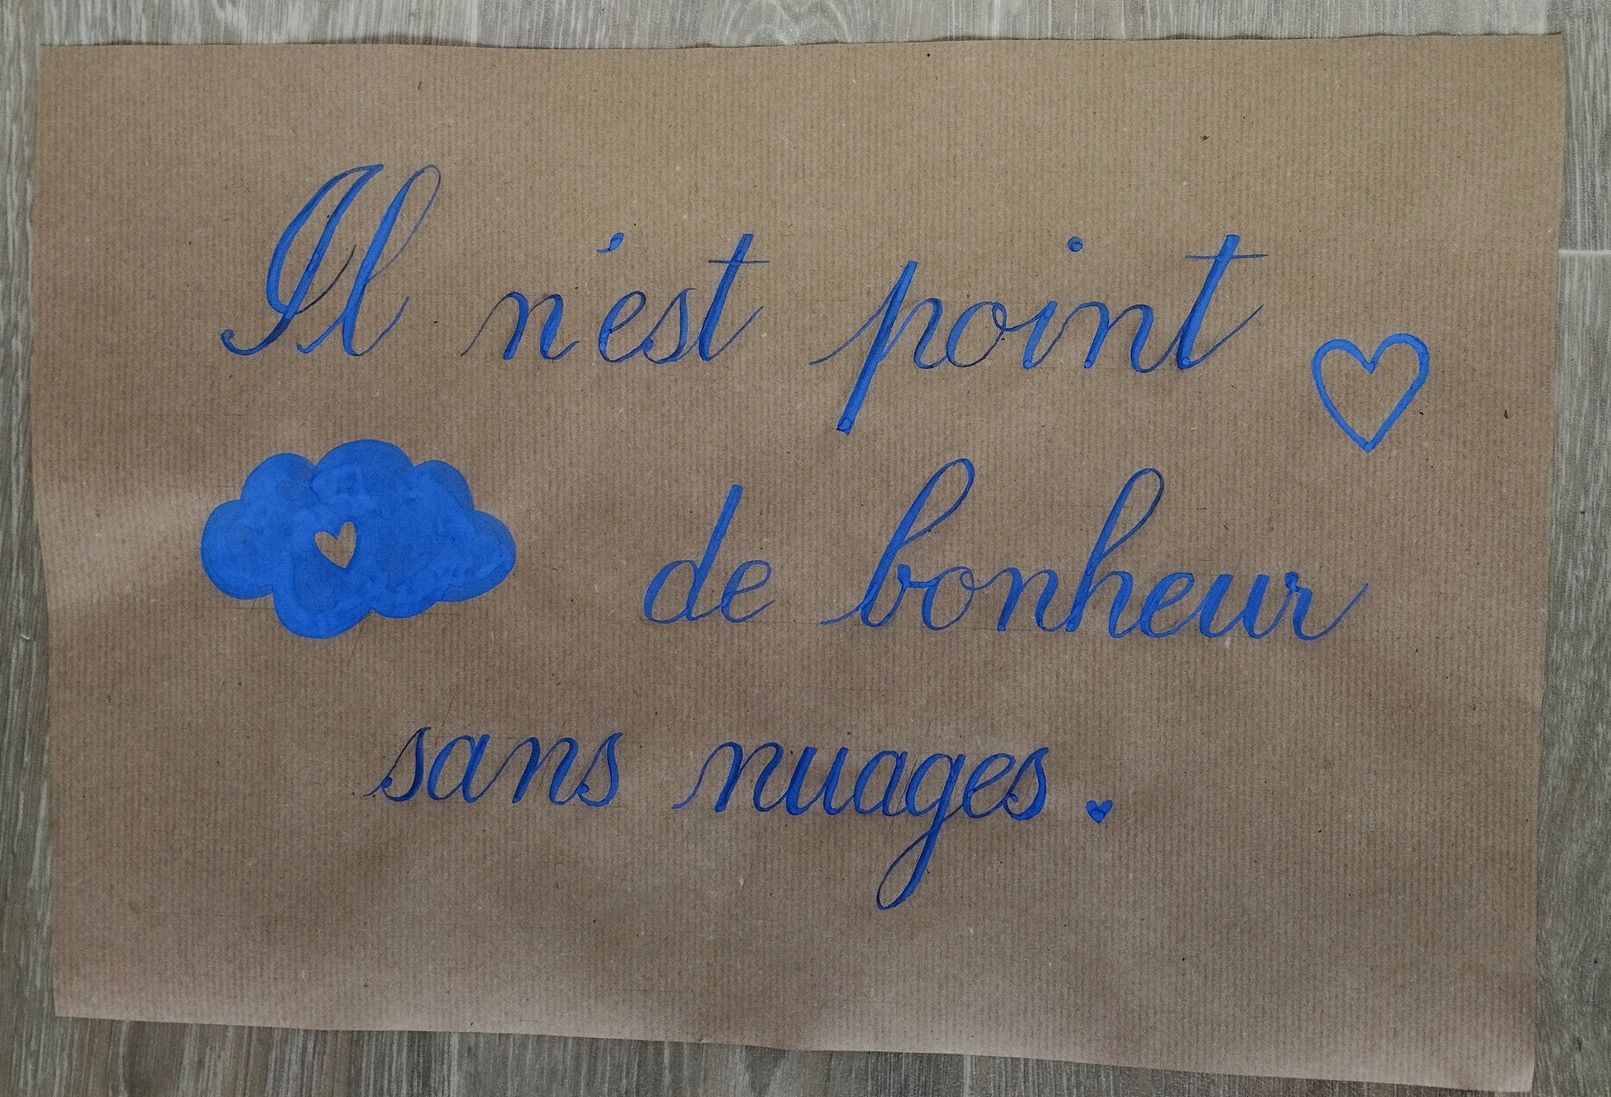 Il n'est point
de bonheur
sans nuages.